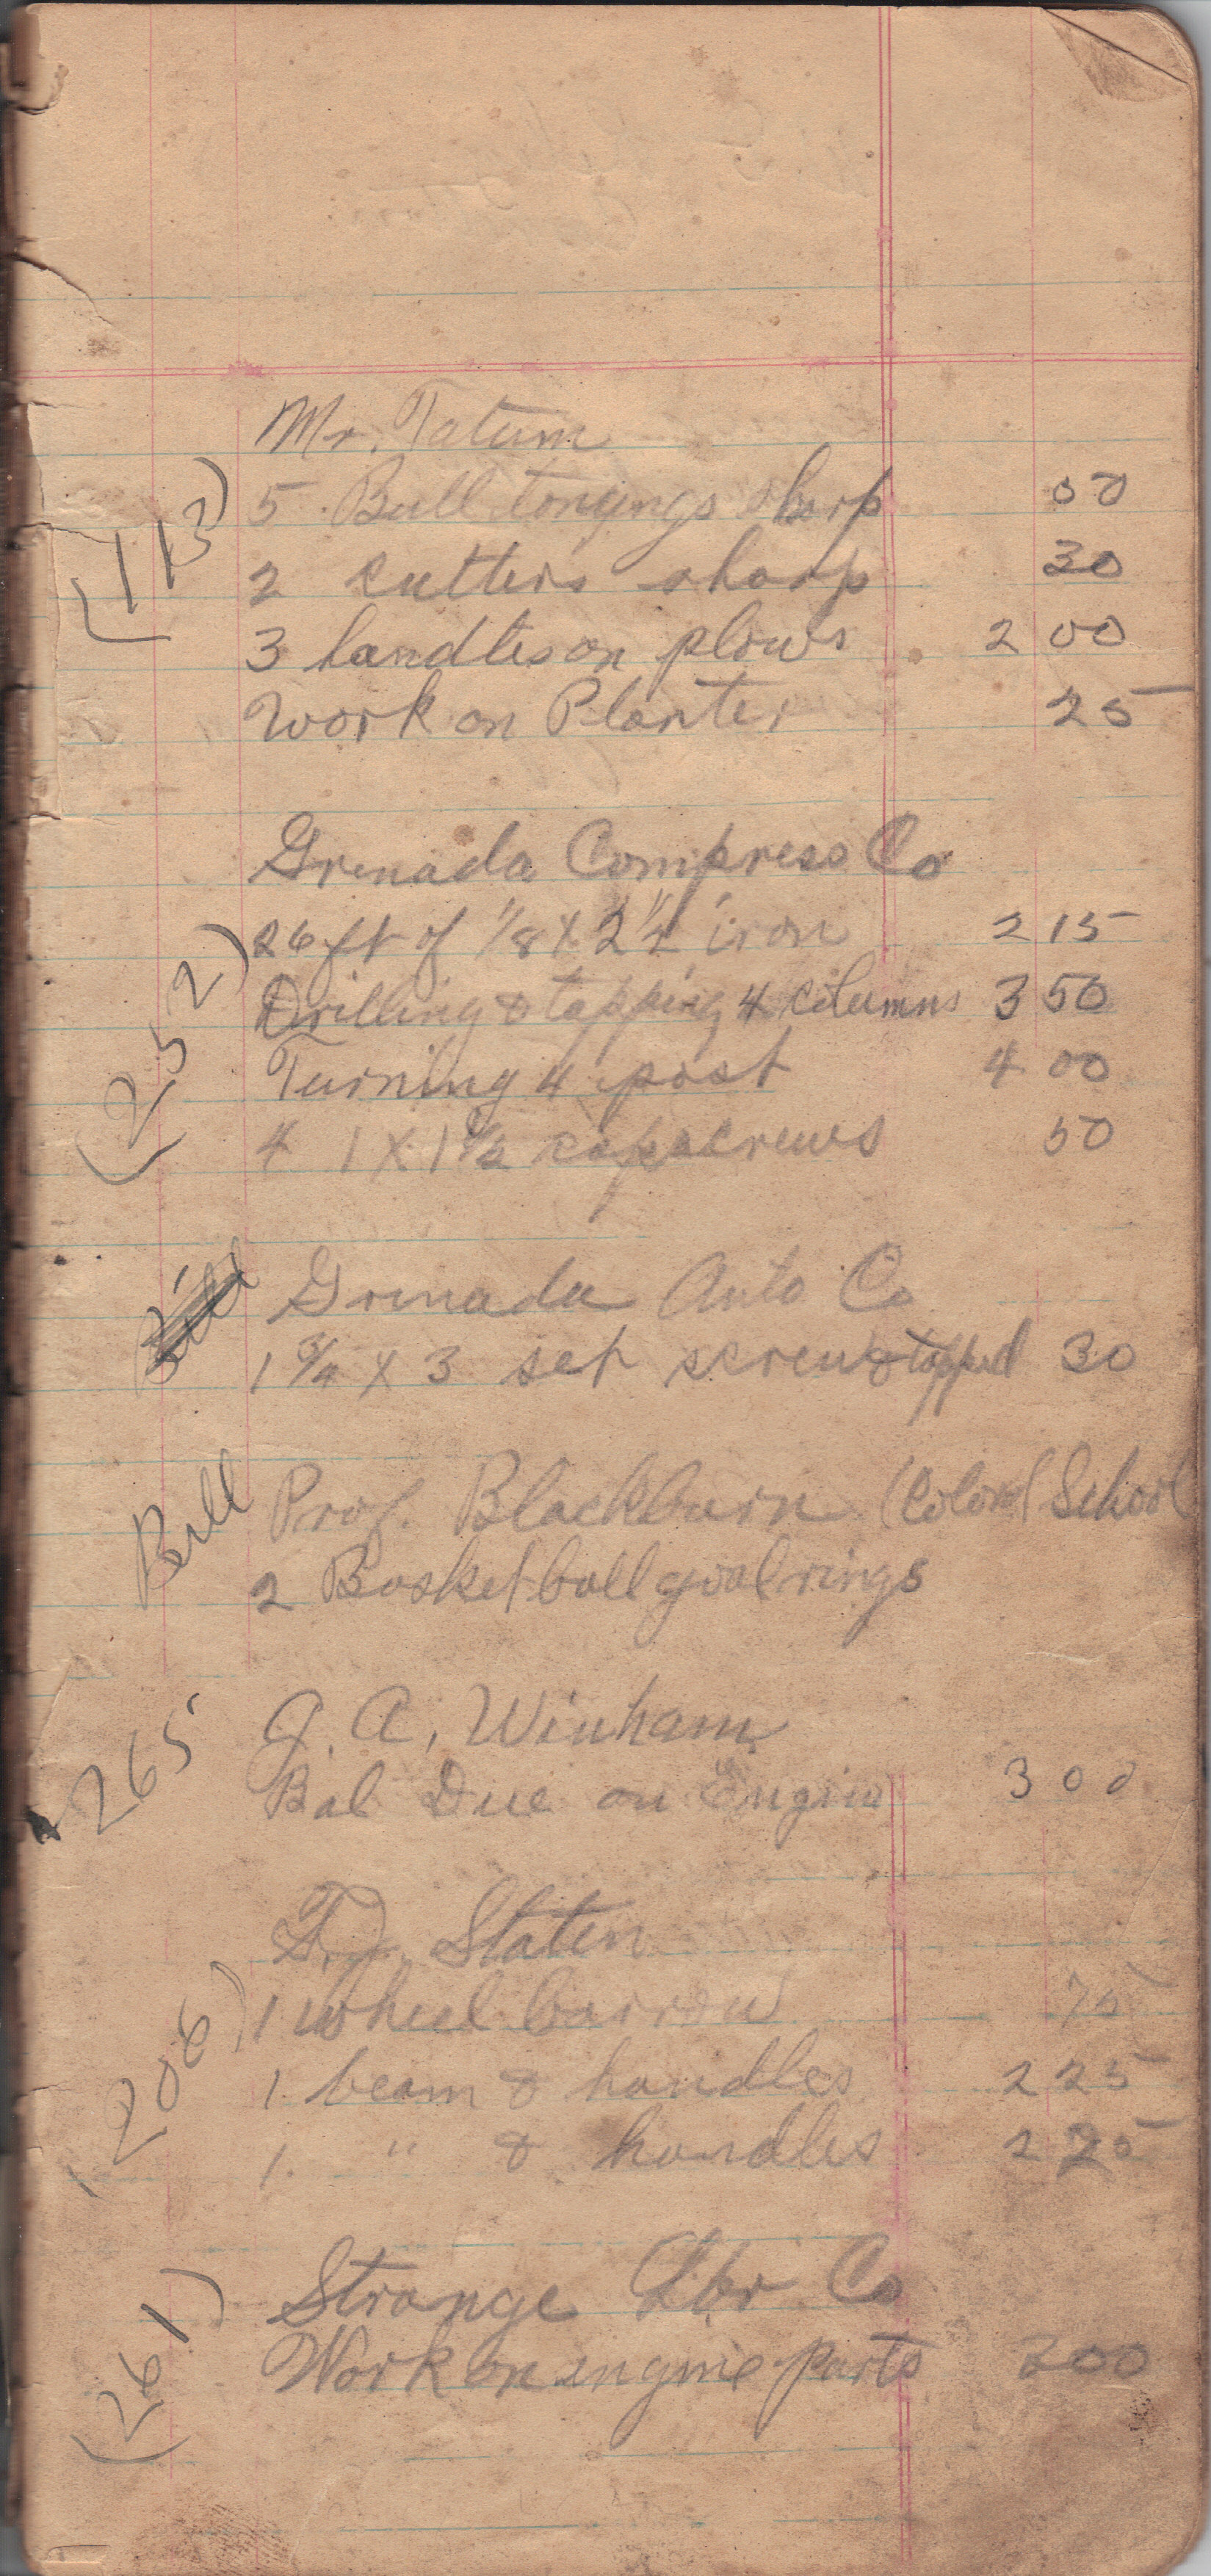 Mr. Tatum
(113) 5 Bull tongings sharp 50
2 cutters sharp 30
3 handles on plows 2 00
Work on Planter 25
Grenada Compress Co
(252) 26 ft of 1/8 X 2 1/4 iron 2 15
Drilling & tapping 4 columns 3 50
Turning 4 post 4 00
4 1 X 1 1/2 capscrews 50
Bill Grenada Auto Co
1 3/4 X 3 set screw & tapped 30
Bill Prof. Blackburn (Colord School
2 Basket ball goal rings
265 J. A. Winham
Bal Due on Engine 3 00
T. J. Staten
(206) 1 wheel barrow 75
1 beam & handles 2 25
1 " & handles 2 25
Strange Lbr Co
(261) Work on engine parts 300